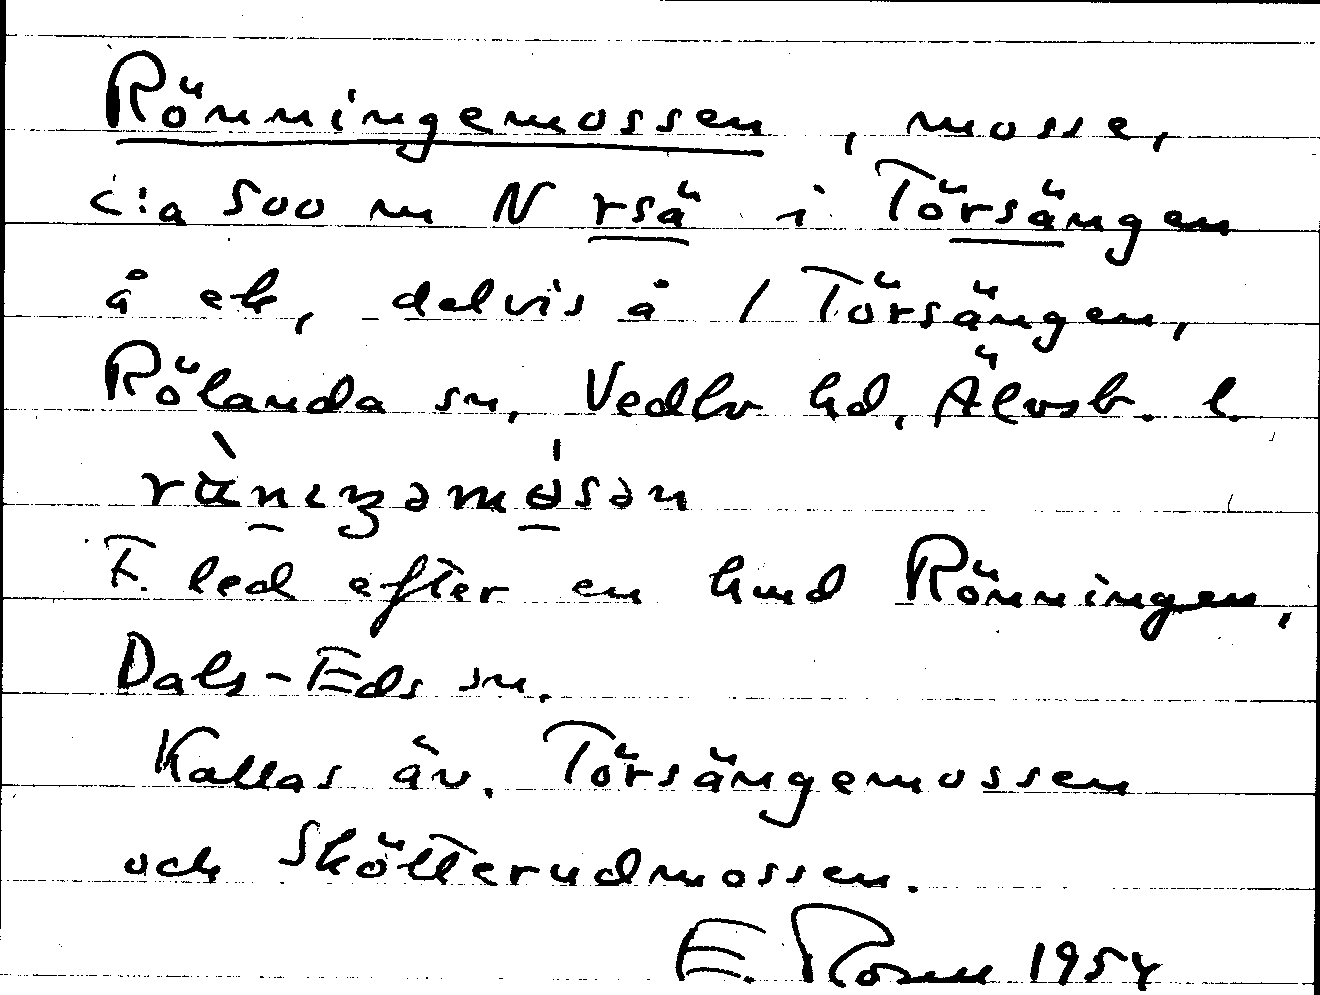 Rönningemossen, mosse,
c:a 500 m N rsä i Törsängen
å ek, delvis å 1 Törsängen,
Rölanda sn, Vedbo hd, Älvsb. l.
F. led efter en hmd Rönningen,
Dals-Eds sn.
Kallas äv. Törsängemossen
och Skötterudmossen.
E. Rosell 1954